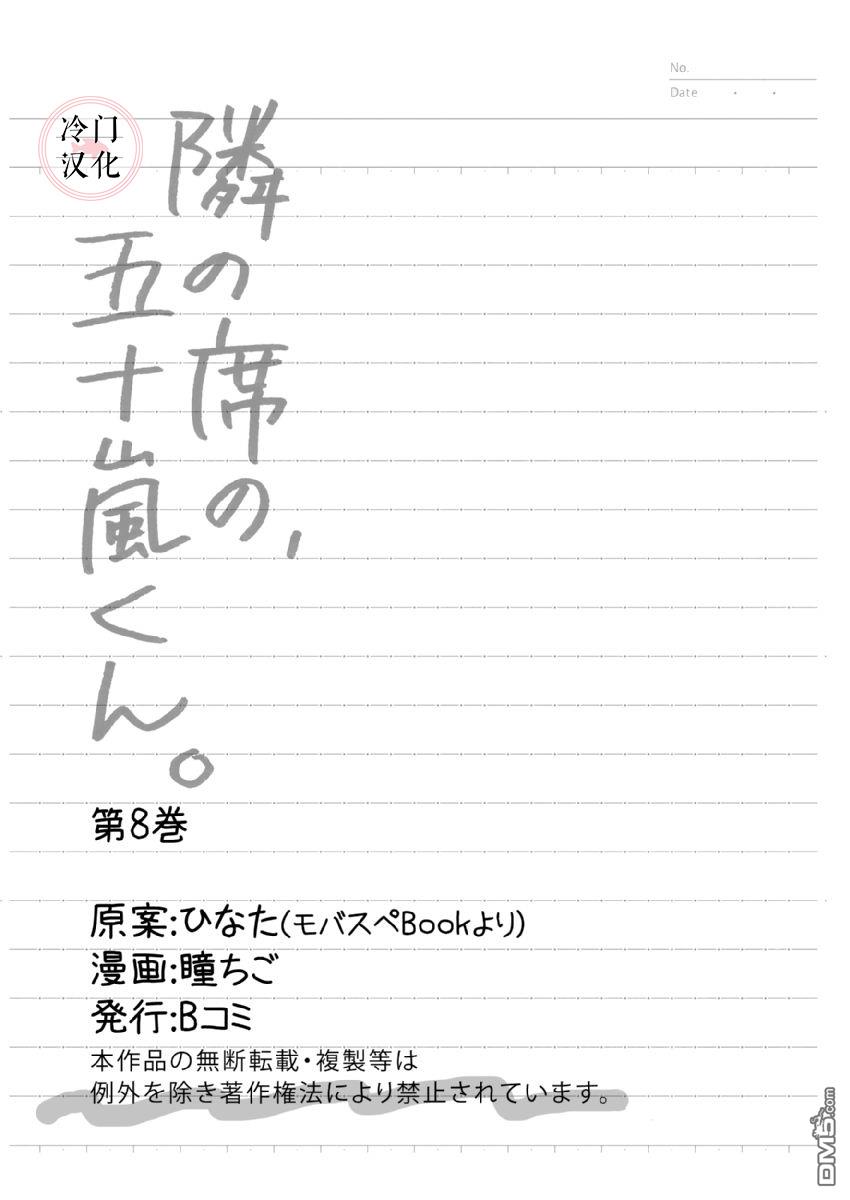 No.
Date
冷门
汉化
隣の席の、
五十嵐くん。
第8巻
原案:ひなた(モバスペBookより)
漫画:瞳ちご
発行:Bコミ
本作品の無断転載・複製等は
例外を除き著作権法により禁止されています。
DM5.com